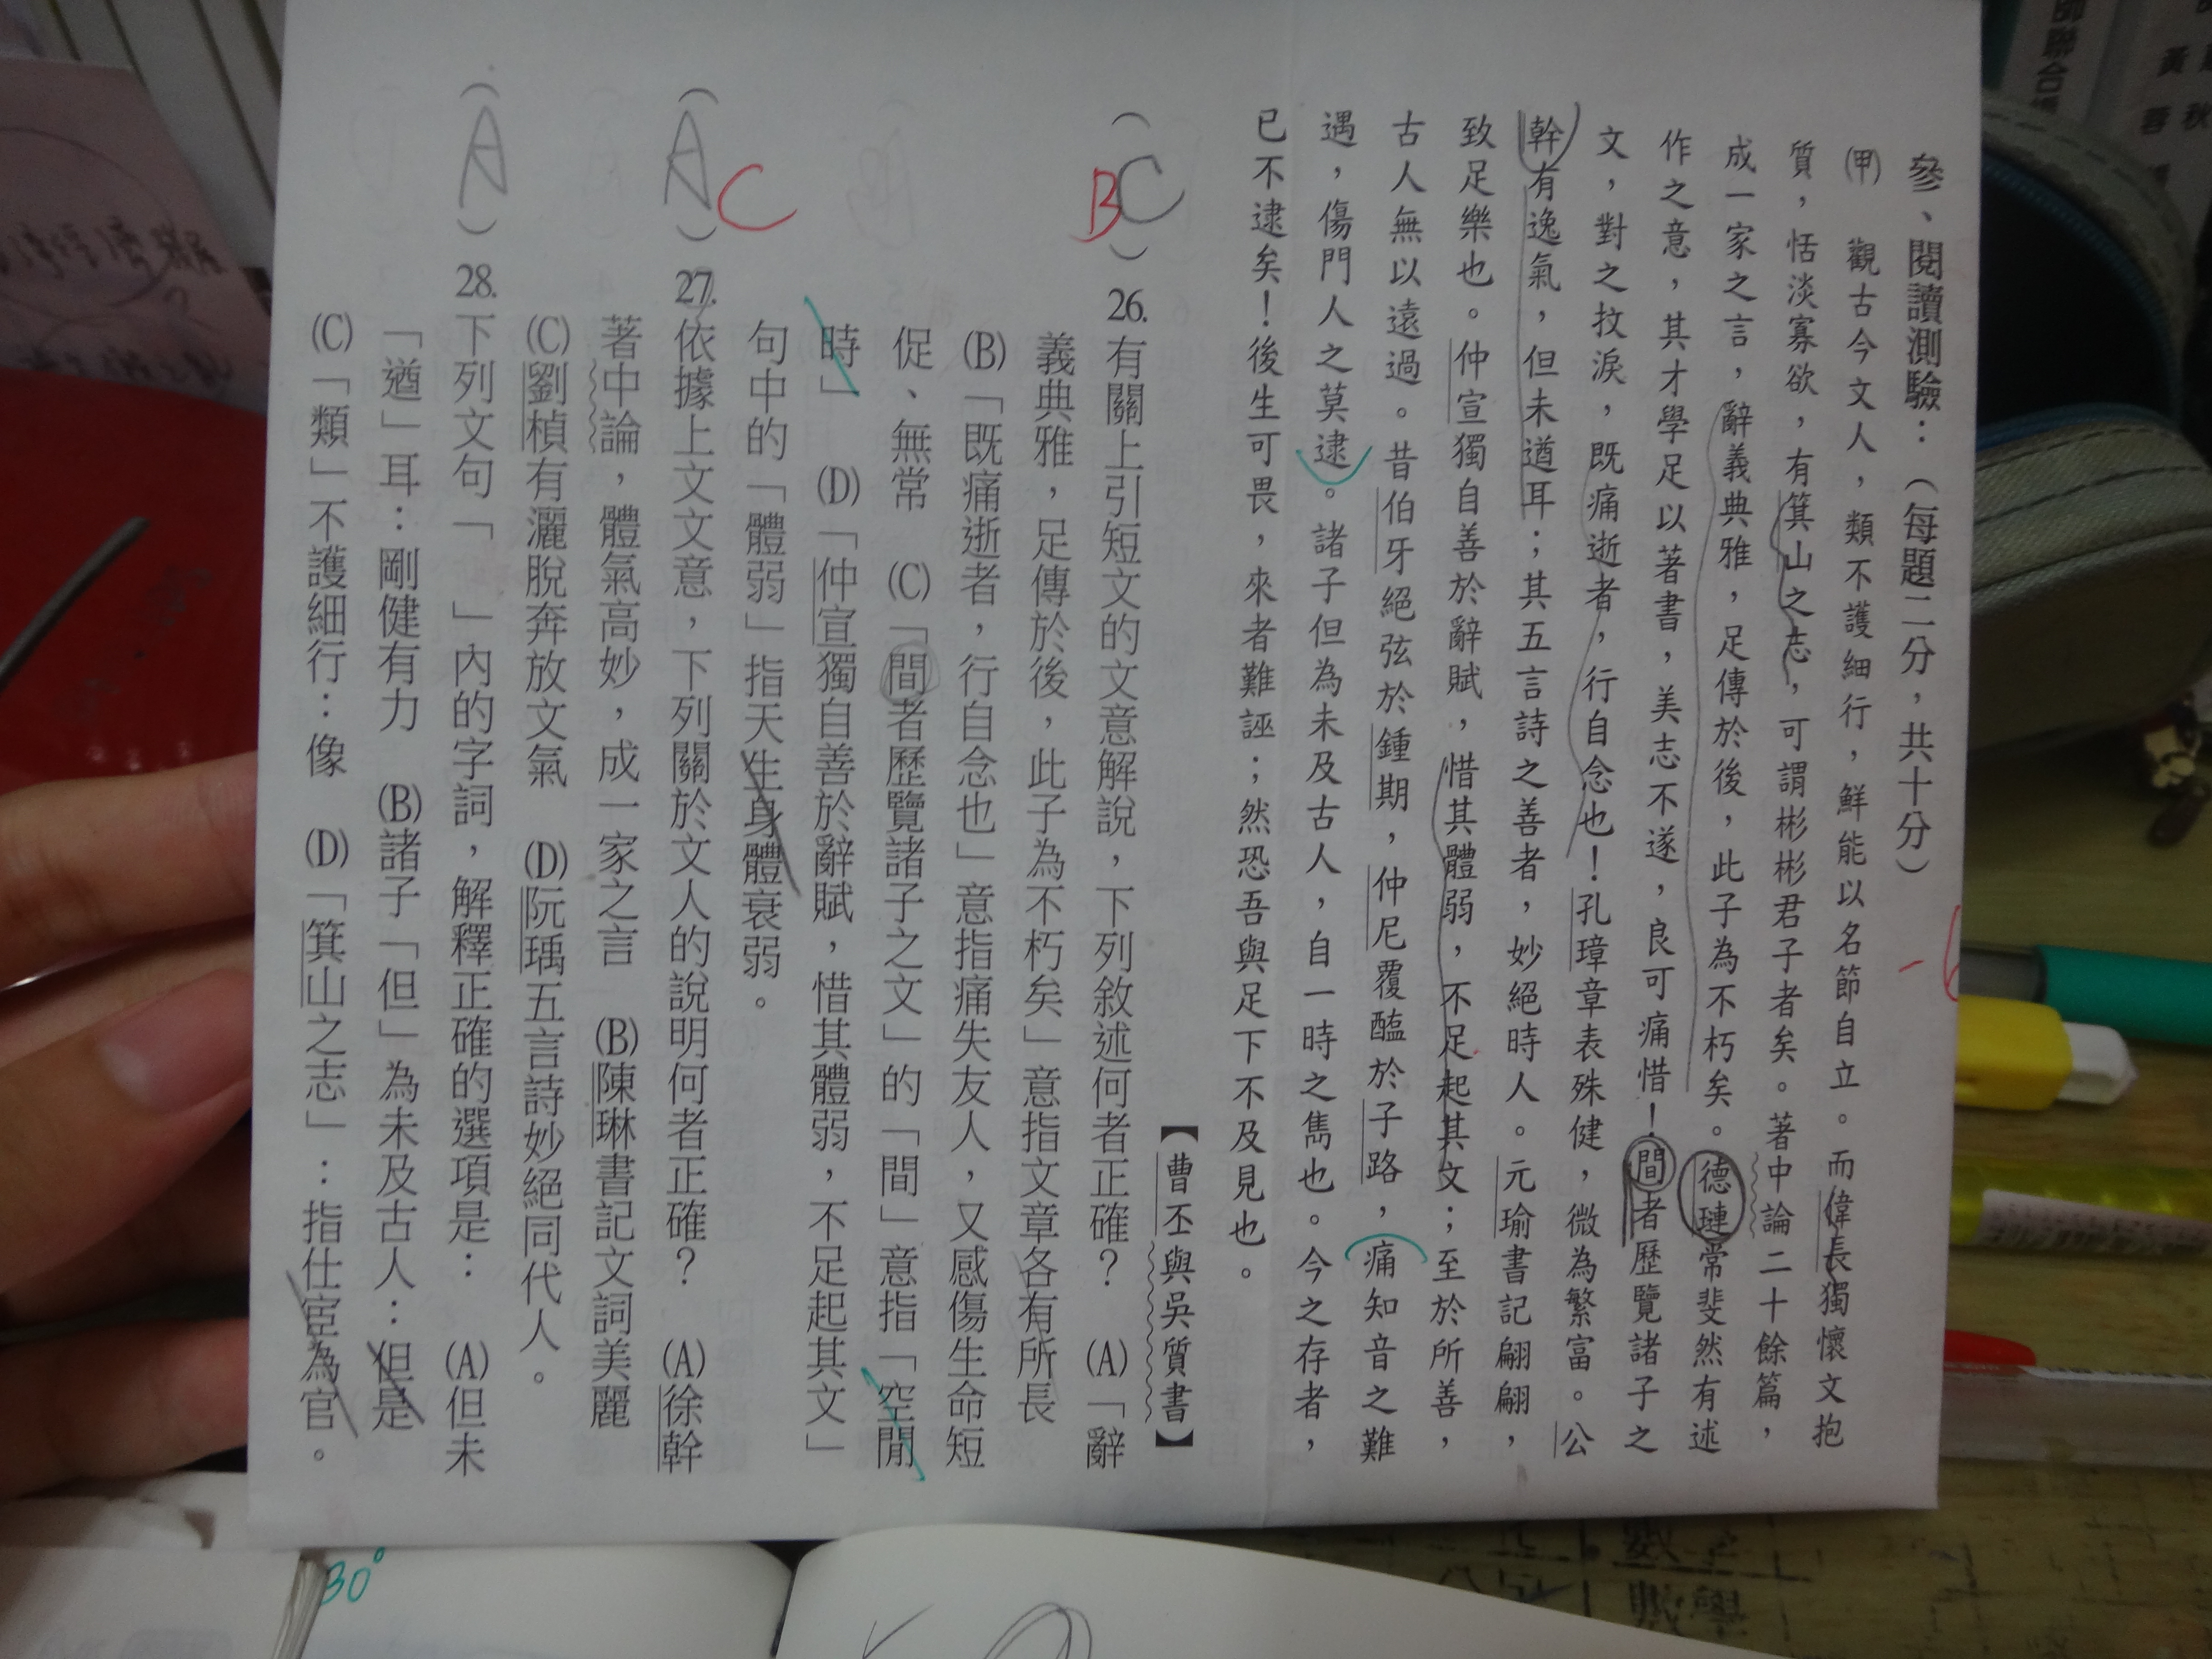 參、閱讀測驗：（每題二分，共十分）
㈙　觀古今文人，類不護細行，鮮能以名節自立。而偉長獨懷文抱
質，恬淡寡欲，有箕山之志，可謂彬彬君子者矣。著中論二十餘篇，
成一家之言，辭義典雅，足傳於後，此子為不朽矣。德璉常斐然有述
作之意，其才學足以著書，美志不遂，良可痛惜！間者歷覽諸子之
文，對之抆淚，既痛逝者，行自念也！孔璋章表殊健，微為繁富。公
幹有逸氣，但未遒耳；其五言詩之善者，妙絕時人。元瑜書記翩翩，
致足樂也。仲宣獨自善於辭賦，惜其體弱，不足起其文；至於所善，
古人無以遠過。昔伯牙絕弦於鍾期，仲尼覆醢於子路，痛知音之難
遇，傷門人之莫逮。諸子但為未及古人，自一時之雋也。今之存者，
已不逮矣！後生可畏，來者難誣；然恐吾與足下不及見也。
【曹丕與吳質書】
（C）26.有關上引短文的文意解說，下列敘述何者正確？　(A)「辭
B
義典雅，足傳於後，此子為不朽矣」意指文章各有所長
(B)「既痛逝者，行自念也」意指痛失友人，又感傷生命短
促、無常　(C)「間者歷覽諸子之文」的「間」意指「空閒
時」　(D)「仲宣獨自善於辭賦，惜其體弱，不足起其文」
句中的「體弱」指天生身體衰弱。
（A）27.依據上文文意，下列關於文人的說明何者正確？　(A)徐幹
C
著中論，體氣高妙，成一家之言　(B)陳琳書記文詞美麗
(C)劉楨有灑脫奔放文氣　(D)阮瑀五言詩妙絕同代人。
（A）28.下列文句「　」內的字詞，解釋正確的選項是：　(A)但未
「遒」耳：剛健有力　(B)諸子「但」為未及古人：但是
(C)「類」不護細行：像　(D)「箕山之志」：指仕宦為官。
30°
數學